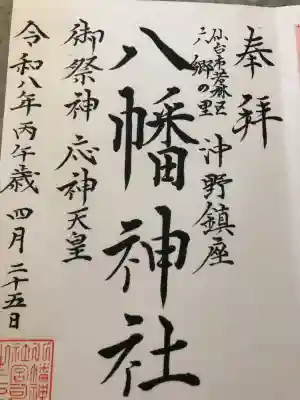 奉拝
仙台市若林区
六郷の里
沖野鎮座
八幡神社
御祭神 応神天皇
令和八年丙午歳 四月 二十五日